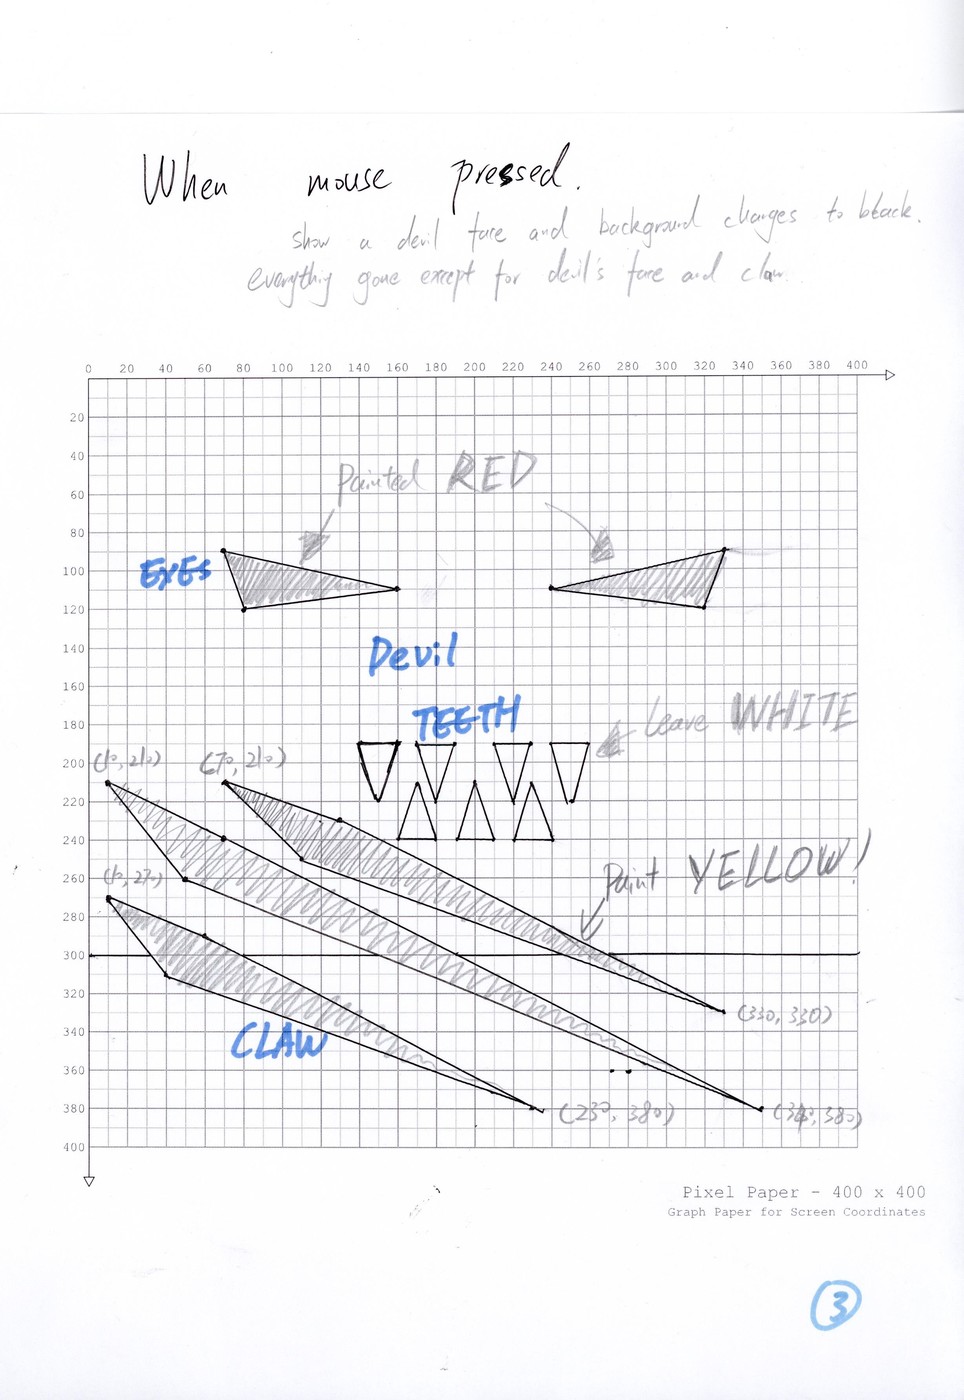 When mouse pressed.
show a devil face and background changes to black.
everything gone except for devil's face and claw.
0 20 40 60 80 100 120 140 160 180 200 220 240 260 280 300 320 340 360 380 400
20
40
Painted RED
60
80
EYES
100
120
Devil
140
160
TEETH
Leave WHITE
180
200
(10, 210) (70, 210)
220
240
Paint YELLOW!
260
(10, 270)
280
300
320
(330, 330)
CLAW
340
360
380
(230, 380)
400
Pixel Paper - 400 x 400
Graph Paper for Screen Coordinates
3